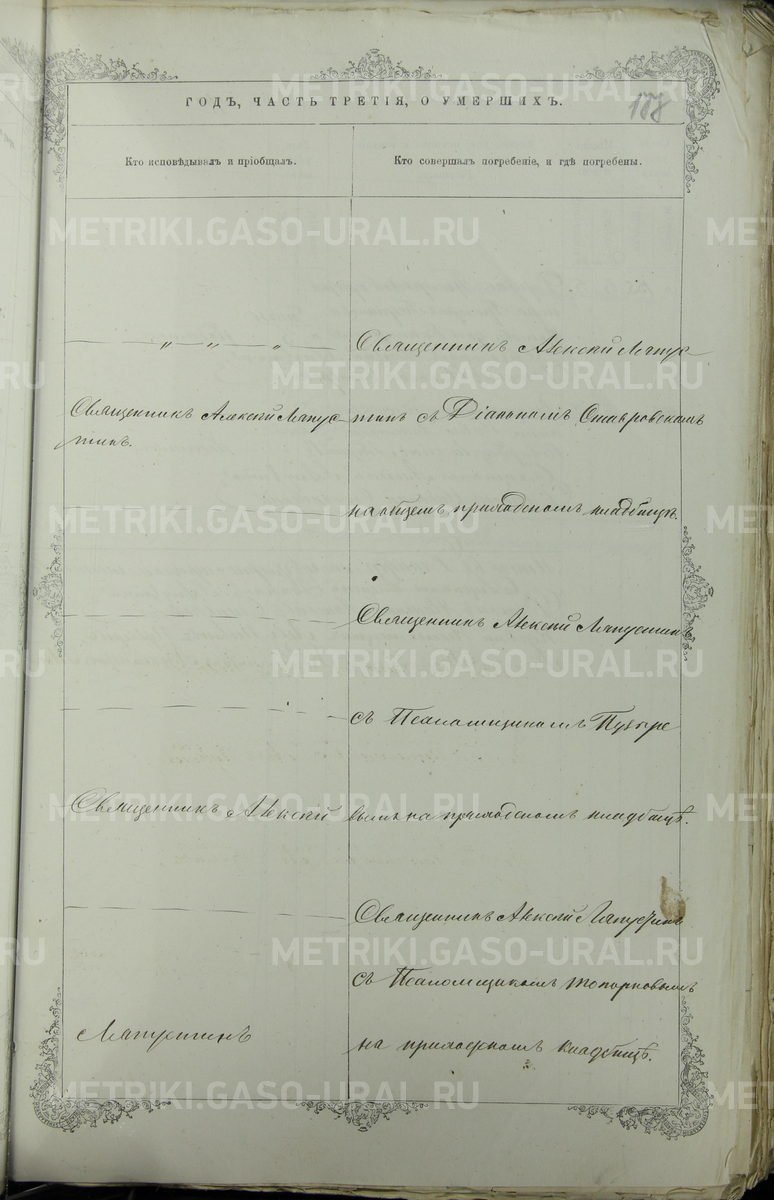 188
ГОДЪ, ЧАСТЬ ТРЕТІЯ, О УМЕРШИХЪ.
Кто исповѣдывалъ и пріобщалъ.
Кто совершалъ погребеніе, и гдѣ погребены.
Священникъ Алексѣй Лапус-
тинъ.
Священникъ Алексѣй
Лапустинъ
Священникъ Алексѣй Лапус-
тинъ съ Діакономъ Ставровскимъ
на общемъ приходскомъ кладбищѣ.
Священникъ Алексѣй Лапустинъ
съ Псаломщикомъ Пузыре
вымъ на приходскомъ кладбищѣ.
Священникъ Алексѣй Лапустинъ
съ Псаломщикомъ Топорковымъ
на приходскомъ кладбищѣ.
METRIKI.GASO-URAL.RU